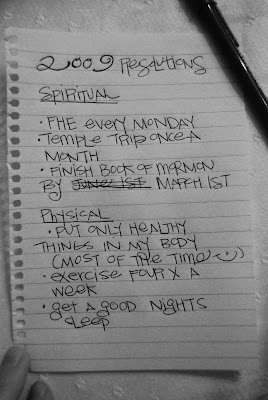 2009 Resolutions
Spiritual
• FHE every Monday
• Temple Trip once a
month
• Finish Book of Mormon
by June 1st March 1st
Physical
• Put only healthy
things in my body
(most of the time :-))
• exercise four x a
week
• get a good nights
sleep